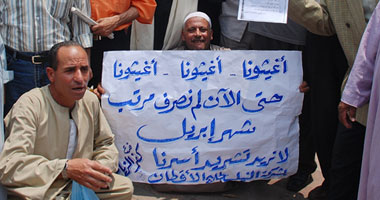 أغيثونا - أغيثونا - أغيثونا
حتى الآن لم نصرف مرتب
شهر إبريل
لا نريد تشريد أسرنا
الأقطان